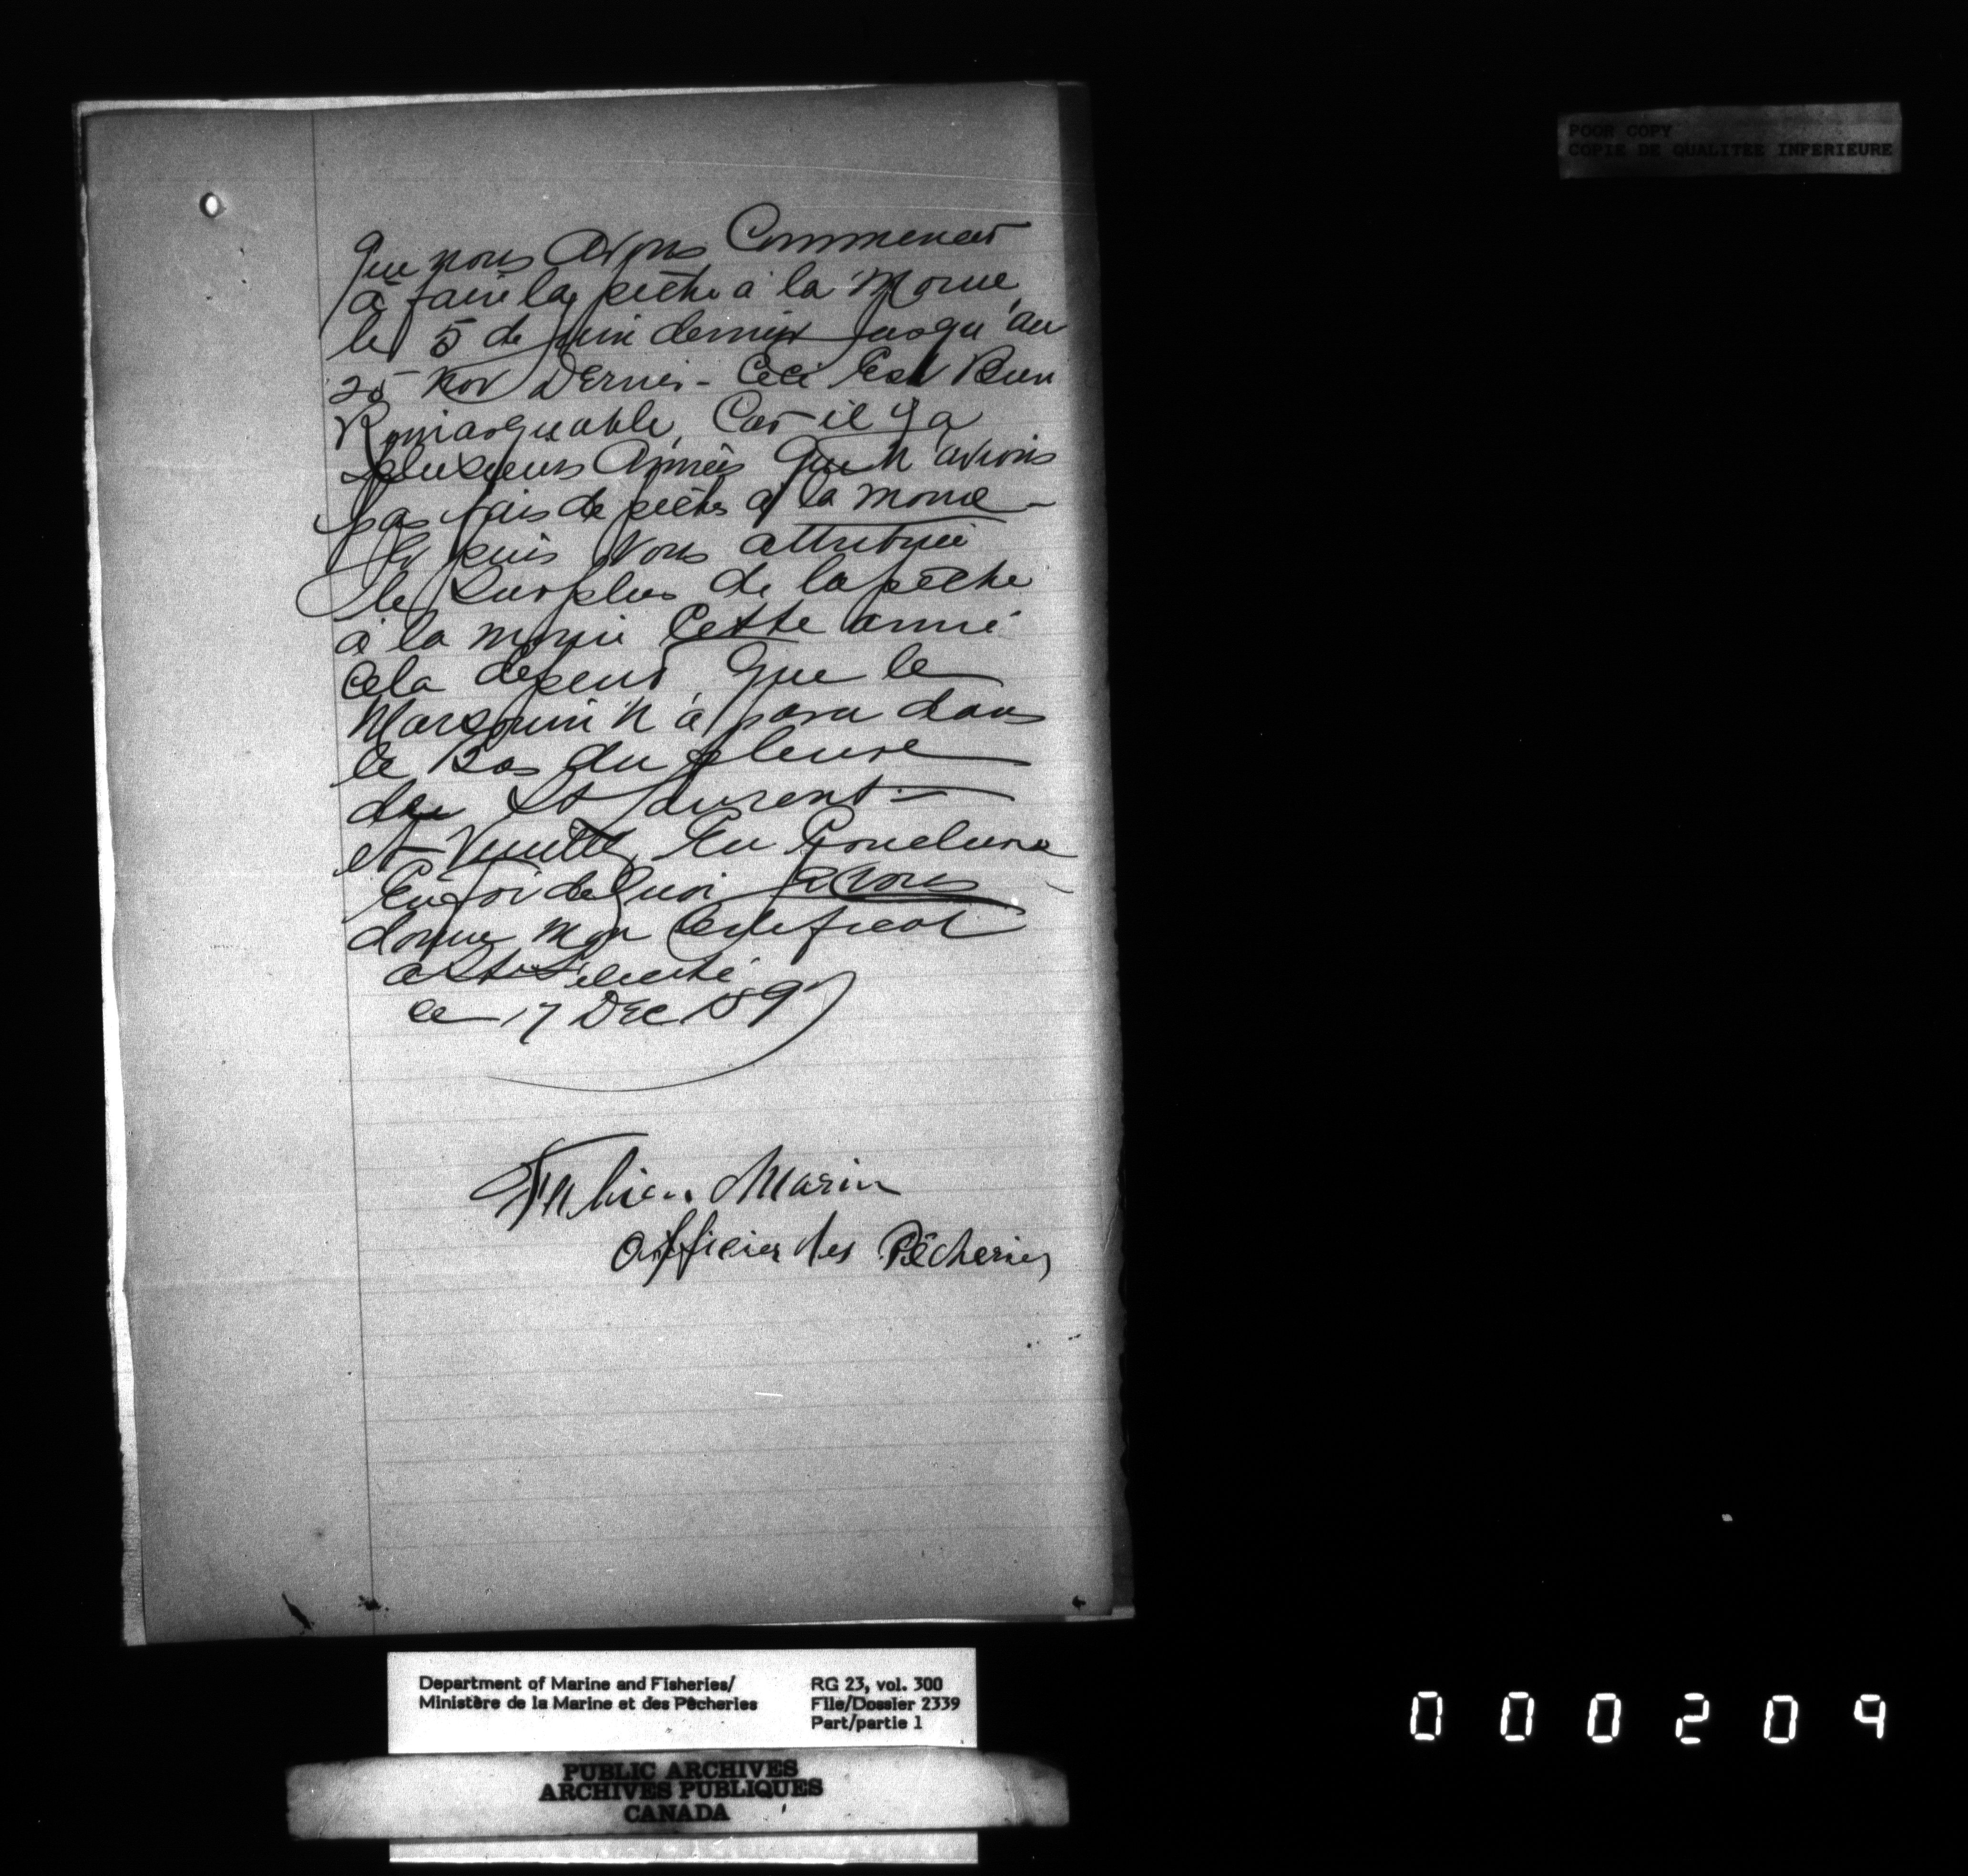 que nous avons Commencer
à faire la pêche à la Morue
le 5 de juin dernier jusqu'au
25 Nov Dernier - Ceci Est Bien
Remarquable, Car il y a
plusieurs Années que n'avions
pas fais de pêche à la morue -
Et puis Nous attribuée
le Surplus de la pêche
à la morue Cette anné
Cela dépend que le
Marsouin n'a paru dans
le Bas du fleuve
du St Laurent -
et En Conclure
En foi de quoi
donne mon Certificat
à Ste Félicité
ce 17 DEC 189
Fabien Marin
Officier des Pêcheries
POOR COPY
COPIE DE QUALITEE INFERIEURE
Department of Marine and Fisheries/ RG 23, vol. 300
Ministère de la Marine et des Pêcheries File/Dossier 2339
Part/partie 1
PUBLIC ARCHIVES
ARCHIVES PUBLIQUES
CANADA
000209